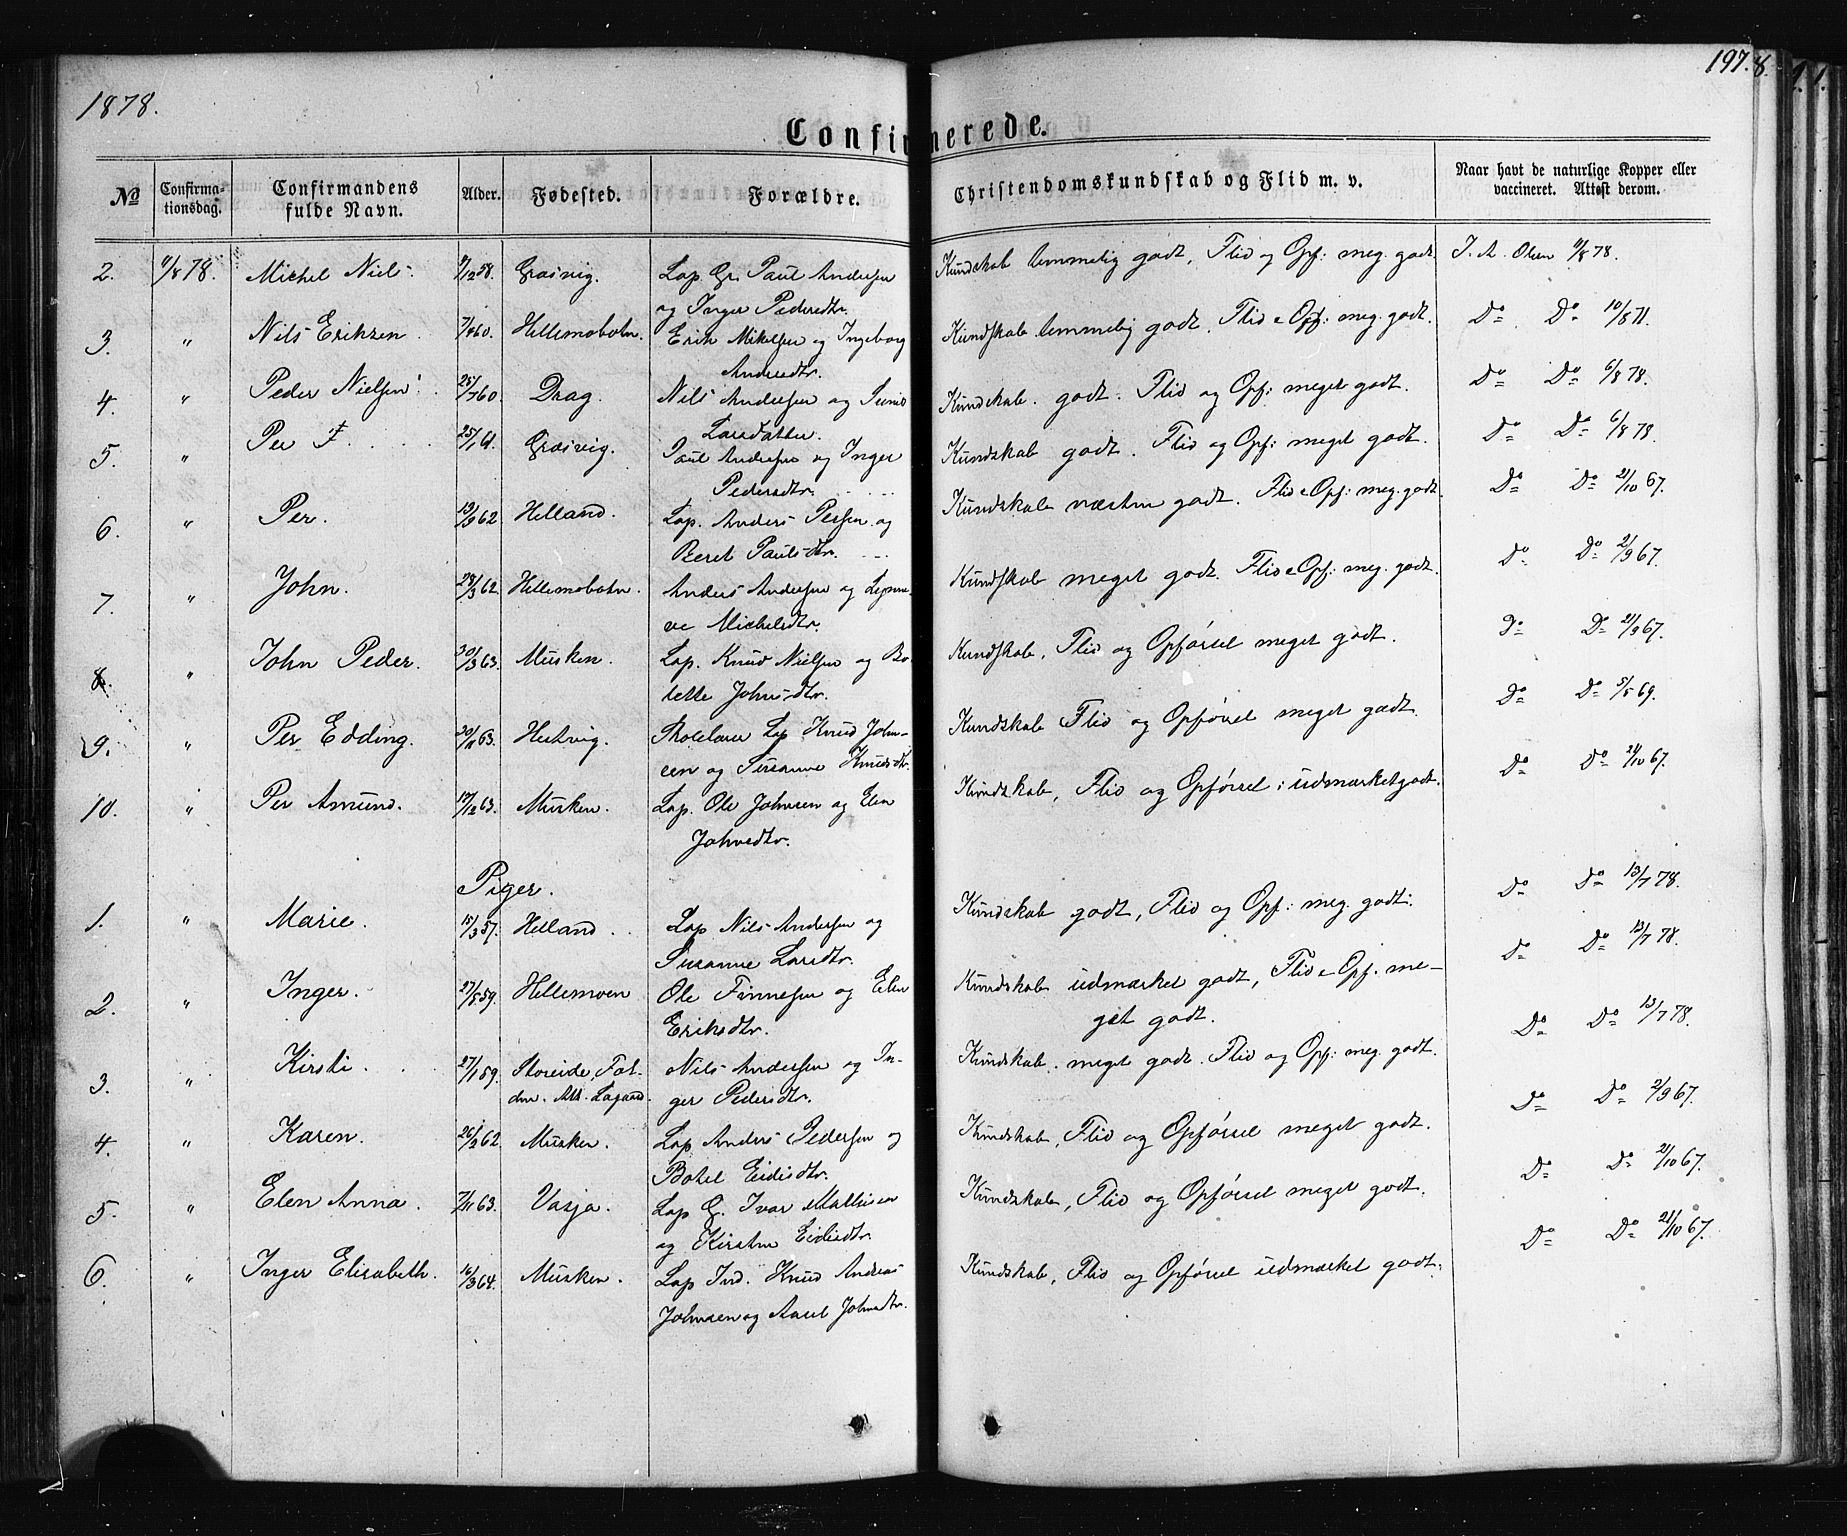 1878.
197.
8.
Confirmerede.
No
Confirma-
tionsdag.
Confirmandens
fulde Navn.
Alder.
Fødested.
Forældre.
Christendomskundskab og Flid m. v.
Naar havt de naturlige Kopper eller
vaccineret. Attest derom.
2. 11/8 78. Michel Niels 9/12 58. Grøsvig. Lap Gr. Paul Andersen Kundskab temmelig godt, Flid og Opf: meg. godt. J. A. Olsen 9/8 78.
og Inger Pedersdtr.
3. " Nils Eriksen. 7/4 60. Hellemobotn. Erik Mikelsen og Ingeborg Kundskab temmelig godt. Flid & Opf: meg. godt. Do Do 10/8 71.
Andersdtr.
4. " Peder Nielsen 25/7 60. Drag. Nils Andersen og Kundskab godt. Flid og Opf: meget godt. Do Do 6/8 78.
Larsdatter.
5. " Per F. 25/1 61. Grøsvig. Paul Andersen og Inger Kundskab godt. Flid og Opf: meget godt. Do Do 6/8 78.
Pedersdtr.
6. " Per. 13/9 62. Helland. Lap. Anders Persen og Kundskab næsten godt. Flid & Opf: meg. godt. Do Do 21/10 67.
Beret Paulsdtr.
7. " John. 28/3 62. Hellemobotn. Anders Andersen og Kundskab meget godt. Flid & Opf: meg. godt. Do Do 2/9 67.
Michelsdtr.
8. " John Peder. 30/3 63. Musken. Lap. Knud Nielsen og Bo- Kundskab, Flid og Opførsel meget godt. Do Do 21/9 67.
lette Johnsdtr.
9. " Per Edding. 30/11 63. Hestvig. Skolelærer Lap Knud John- Kundskab Flid og Opførsel meget godt. Do Do 5/5 69.
sen og Susanne Knudsdtr.
10. " Per Amund. 17/12 63. Musken. Lap. Ole Johnsen og Elen Kundskab, Flid og Opførsel: udmærket godt. Do Do 21/10 67.
Johnsdtr.
Piger.
1. " Marie. 15/3 57. Helland. Lap. Nils Andersen og Kundskab godt, Flid og Opf: meg. godt: Do Do 13/7 78.
Susanne Larsdtr.
2. " Inger. 27/5 59. Hellemoen Ole Finnesen og Elen Kundskab udmærket godt, Flid & Opf. me- Do Do 13/7 78.
Eriksdtr. get godt.
3. " Kirsti. 27/1 59. Storeide, Fol- Nils Andersen og In- Kundskab. meget godt. Flid og Opf: meg. godt. Do Do 13/7 78.
den. Att. ger Pedersdtr.
4. " Karen. 26/2 62. Musken. Lap Anders Pedersen og Kundskab, Flid og Opførsel meget godt. Do Do 2/9 67.
Botel Eidisdtr.
5. " Elen Anna. 7/11 63. Vasja. Lap G. Ivar Mathisen Kundskab, Flid og Opførsel meget godt. Do Do 21/10 67.
og Kirsten Eidisdtr.
6. " Inger Elisabeth. 16/3 64. Musken. Lap Ind. Knud Andreas Kundskab, Flid og Opførsel udmærket godt: Do Do 21/10 67.
Johnsen og Johnsdtr.